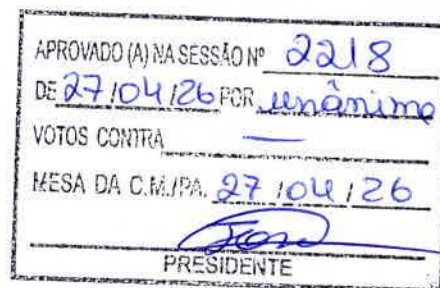 APROVADO (A) NA SESSÃO Nº 2218
DE 27/04/26 POR unânime
VOTOS CONTRA —
MESA DA C.M./PA. 27/04/26
PRESIDENTE